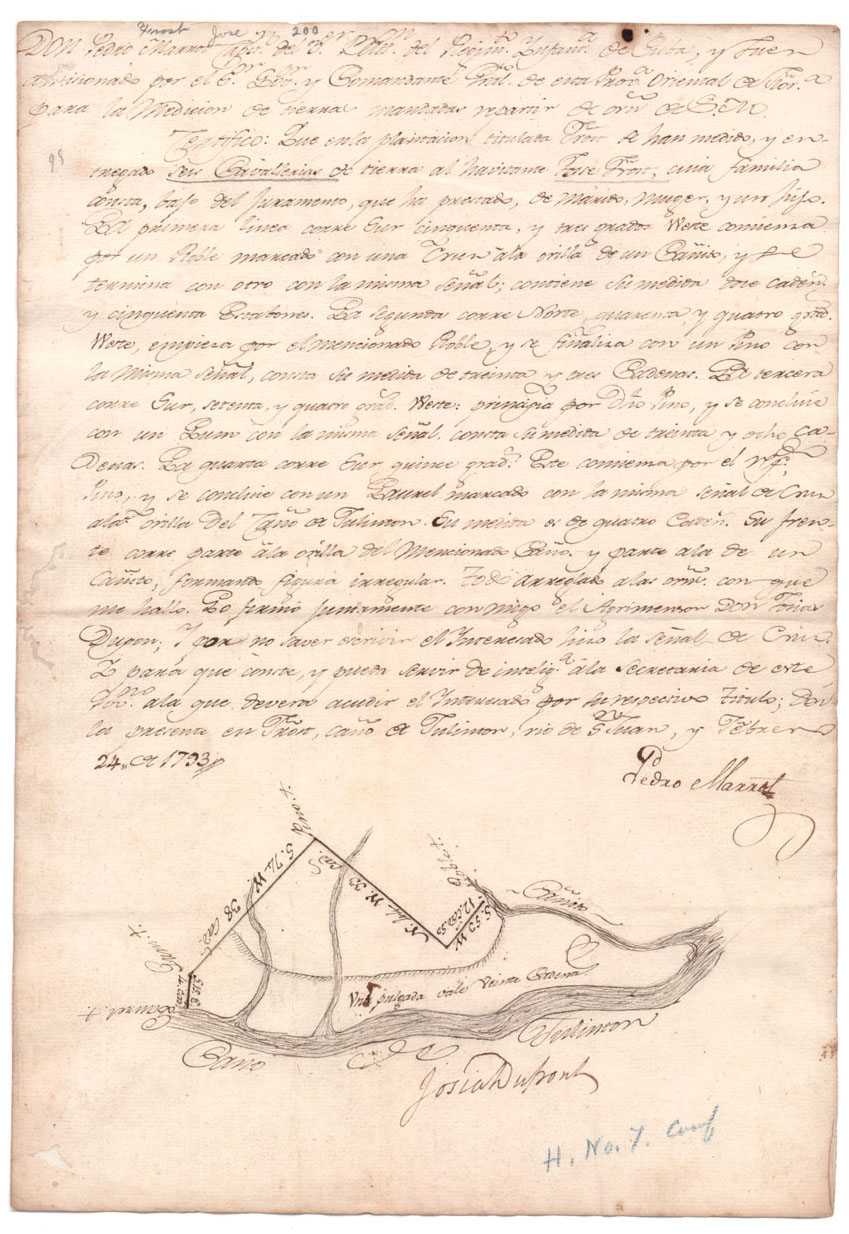 Frost Jose 200
DON Pedro Marrot, Capn. del 3er. Btlln. del Regimto. Infanta. de Cuba, y Juez
comisionado por el Sor. Govor. y Comandante Gral. de esta Prova. Oriental de Flora.
para la Medicion de tierra mandadas repartir de orn. de S.M.
Certifico: Que en la plantacion titulada Frost se han medido, y en-
tregado seis Cavallerias de tierra al havitante Jose Frost, cuia familia
consta, bajo del Juramento, que ha prestado, de Marido, muger, y un hijo.
La primera linea corre Sur cinquenta, y tres grados Weste comiensa
por un Roble marcado con una Cruz a la orilla de un Cañito, y se
termina con otro con la misma señal; contiene su medida doce caden.
y cinquenta Estabones. La segunda corre Norte, quarenta, y quatro grad.
Weste, empieza por el mencionado Roble, y se finaliza con un Pino con
la Misma señal, consta su medida de treinta y tres Cadenas. La tercera
corre Sur, setenta, y quatro grad. Weste: principia por Dho Pino, y se concluie
con un Gum con la misma señal consta su medida de treinta y ocho Ca-
denas. La quarta corre Sur quince grads. Este comiensa por el
Pino, y se concluie con un Laurel marcado con la misma señal de Cruz
a la orilla Del Caño de Tulinton. Su medida es de quatro Caden. Su fren-
te corre parte a la orilla del Mencionado Caño, y parte a la de un
Cañito, formando figura irregular. Todo arreglado a las orns. con que
me hallo. Lo firmó juntamente con migo el Agrimensor Don Josias
Dupon; y por no saver escrivir el Interesado hizo la señal de Cruz.
Y para que conste, y pueda servir de inteliga. a la Secretaria de este
Govno. a la que devera acudir el Interesado por su respectivo titulo; Doi
la presente en Frost, caño de Tulinton, rio de Sn. Juan, y Febrero
24,, de 1793
Pedro Marrot
Pino. +.
S. 74 W.
38 Cad.
N. 44. W. 33 Cad.
Roble +.
S. 53 W
12 Cad. 50
Cañito
Gum. +.
S 15. E
4. Cad.
Laurel. +.
Una pulgada vale Veinte Cadenas.
Caño de Tulinton
Josiah Dupont
H. No. 7. Conf